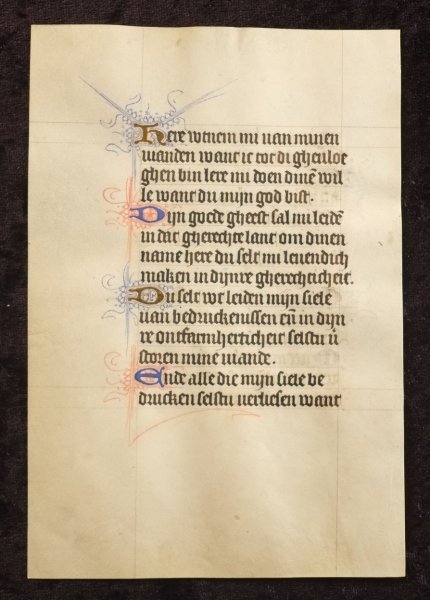 Here verlem mi uan minen
uianden want ic tot di gheuloe
ghen bin lere mi doen dinē wil
le want du mijn god bist.
Dijn goede gheest sal mi leidē
in dat gherechte lant om dinen
name here du selt mi leuendich
maken in dijnre gherechticheit.
Du selt wt leiden mijn siele
uan bedruckenissen eñ in dijn
re ontfarmherticheit selstu ū
storen mine uiande.
Ende alle die mijn siele be
drucken selstu uerliesen want